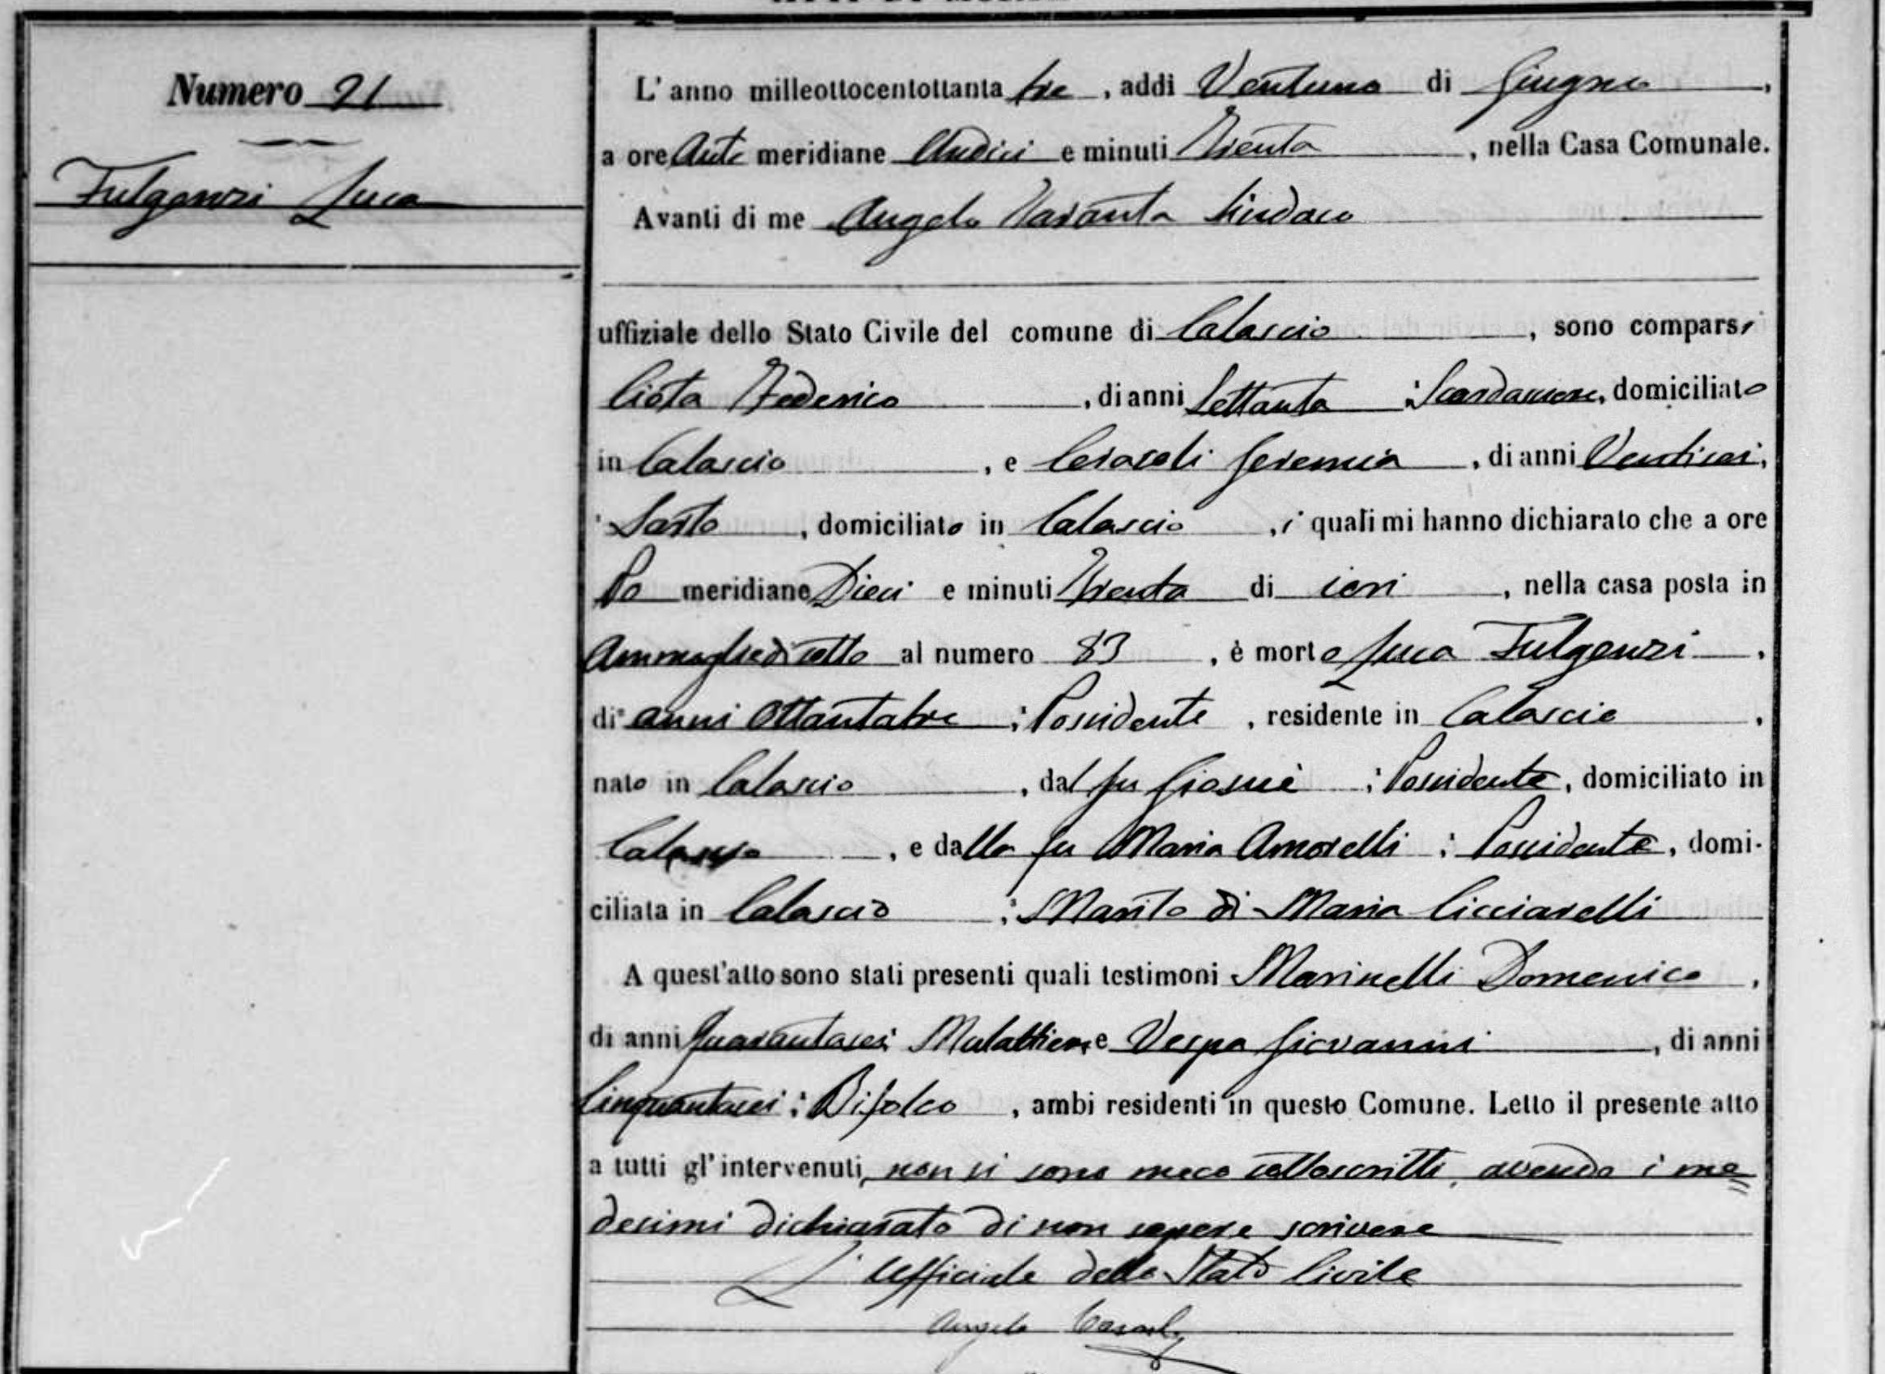 Numero 21
Fulgenzi Luca
L'anno milleottocentottanta tre, addì Ventuno di Giugno,
a ore Ante meridiane Undici e minuti Trenta, nella Casa Comunale.
Avanti di me Angelo Taranta Sindaco
uffiziale dello Stato Civile del comune di Calascio, sono comparsi
Ciota Federico, di anni Settanta; Scardassiere, domiciliato
in Calascio, e Ceracoli Geremia, di anni Ventisei,
Sarto, domiciliato in Calascio, i quali mi hanno dichiarato che a ore
Po meridiane Dieci e minuti Trenta di ieri, nella casa posta in
al numero 83, è morto Luca Fulgenzi,
di anni Ottantatre; Possidente, residente in Calascio,
nato in Calascio, dal fu Giosuè; Possidente, domiciliato in
Calascio, e dalla fu Maria Amorelli; Possidente, domi-
ciliata in Calascio; Marito di Maria Cicciarelli
A quest'atto sono stati presenti quali testimoni Marinelli Domenico,
di anni Quarantasei Mulattiere e Vespa Giovanni, di anni
Cinquantasei; Bifolco, ambi residenti in questo Comune. Letto il presente atto
a tutti gl'intervenuti, non si sono meco sottoscritti, avendo i me
desimi dichiarato di non sapere scrivere
L'Ufficiale dello Stato Civile
Angelo Taranta